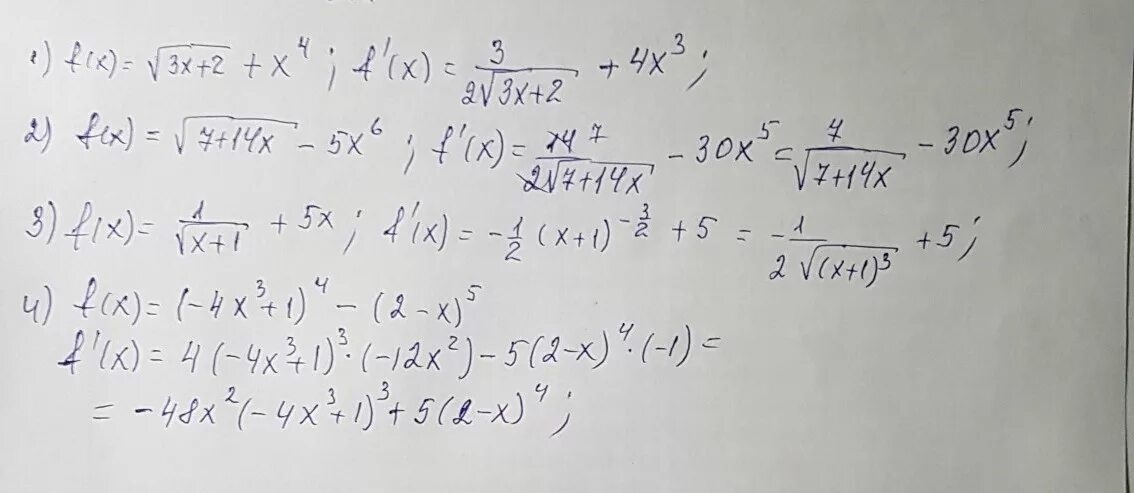 1) f(x) = √(3x+2) + x⁴ ; f'(x) = 3/(2√(3x+2)) + 4x³ ;
2) f(x) = √(7+14x) - 5x⁶ ; f'(x) = 14 7/(2√(7+14x)) - 30x⁵ = 7/√(7+14x) - 30x⁵ ;
3) f(x) = 1/√(x+1) + 5x ; f'(x) = -1/2 (x+1)^(-3/2) + 5 = -1/(2√((x+1)³)) + 5 ;
4) f(x) = (-4x³+1)⁴ - (2-x)⁵
f'(x) = 4(-4x³+1)³·(-12x²) - 5(2-x)⁴·(-1) =
= -48x²(-4x³+1)³ + 5(2-x)⁴ ;